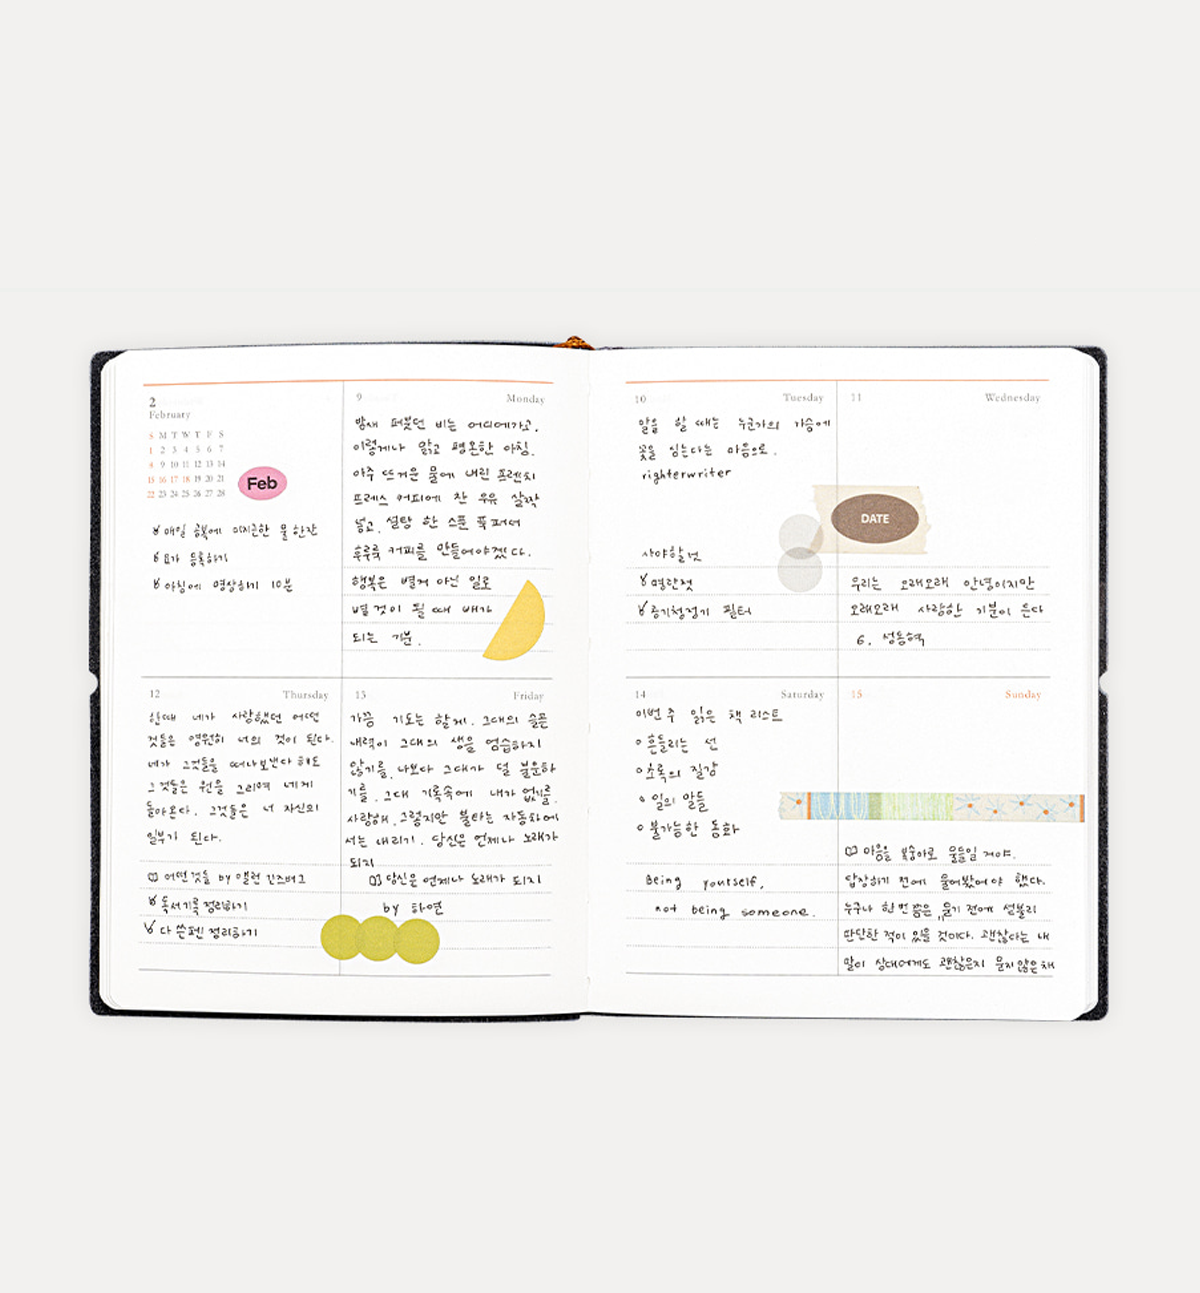 2
February
S M T W T F S
1 2 3 4 5 6 7
8 9 10 11 12 13 14
15 16 17 18 19 20 21
22 23 24 25 26 27 28
Feb
매일 공복에 미지근한 물 한잔
요가 등록하기
아침에 명상하기 10분
9 Monday
밤새 퍼붓던 비는 어디에가고,
이렇게나 맑고 평온한 아침.
아주 뜨거운 물에 내린 프렌치
프레스 커피에 찬 우유 살짝
넣고, 설탕 한 스푼 푹 퍼서
후루룩 커피를 만들어야겠다.
행복은 별거 아닌 일로
별 것이 될 때 배가
되는 기분.
10 Tuesday
말을 할 때는 누군가의 가슴에
꽃을 심는다는 마음으로.
righterwriter
사야할것
명란젓
공기청정기 필터
11 Wednesday
DATE
우리는 오래오래 안녕이지만
오래오래 사랑한 기분이 든다
6. 성동혁
12 Thursday
한때 네가 사랑했던 어떤
것들은 영원히 너의 것이 된다.
네가 그것들을 떠나보낸다 해도
그것들은 원을 그리며 네게
돌아온다. 그것들은 너 자신의
일부가 된다.
어떤것들 by 앨런 긴즈버그
독서기록 정리하기
다 쓴펜 정리하기
13 Friday
가끔 기도는 할게. 그대의 슬픈
내력이 그대의 생을 엄습하지
않기를, 나보다 그대가 덜 불운하
기를, 그대 기록속에 내가 없기를.
사랑해. 그렇지만 불타는 자동차에
서는 내리기. 당신은 언제나 노래가
되지
당신은 언제나 노래가 되지
by 허연
14 Saturday
이번 주 읽은 책 리스트
흔들리는 선
초록의 질감
일의 말들
불가능한 동화
Being yourself,
not being someone.
15 Sunday
마음을 복숭아로 물들일 거야.
답장하기 전에 물어봤어야 했다.
누구나 한번쯤은 묻기 전에 섣불리
판단한 적이 있을 것이다. 괜찮다는 내
말이 상대에게도 괜찮은지 묻지않은채